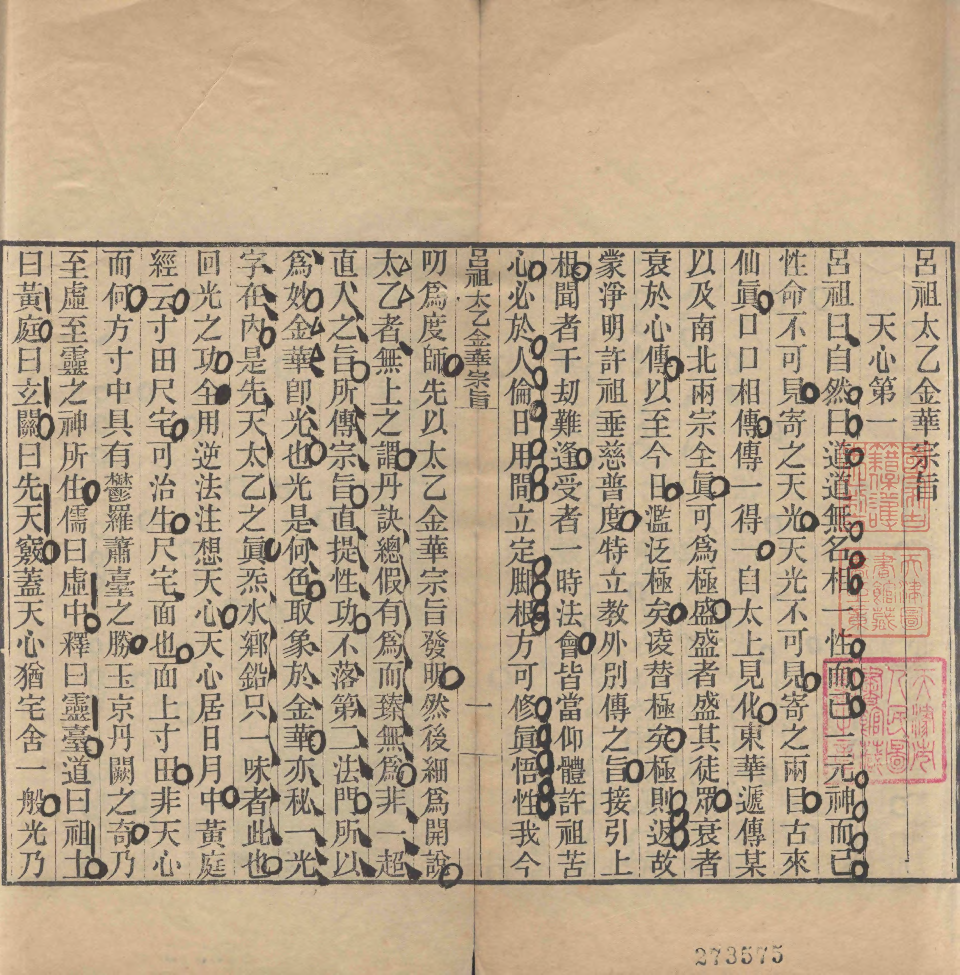 呂祖太乙金華宗旨
天心第一
呂祖曰自然曰道道無名相一性而已一元神而已
性命不可見寄之天光天光不可見寄之兩目古來
仙眞口口相傳傳一得一自太上見化東華遞傳某
以及南北兩宗全眞可爲極盛盛者盛其徒眾衰者
衰於心傳以至今日濫泛極矣凌替極矣極則返故
蒙淨明許祖垂慈普度特立教外別傳之旨接引上
根聞者千劫難逢受者一時法會皆當仰體許祖苦
心必於人倫日用間立定脚根方可修眞悟性我今
呂祖太乙金華宗旨
一
叨爲度師先以太乙金華宗旨發明然後細爲開說
太乙者無上之謂丹訣總假有爲而臻無爲非一超
直入之旨所傳宗旨直提性功不落第二法門所以
爲妙金華即光也光是何色取象於金華亦秘一光
字在內是先天太乙之眞炁水鄉鉛只一味者此也
回光之功全用逆法注想天心天心居日月中黃庭
經云寸田尺宅可治生尺宅面也面上寸田非天心
而何方寸中具有鬱羅蕭臺之勝玉京丹闕之奇乃
至虛至靈之神所住儒曰虛中釋曰靈臺道曰祖土
曰黃庭曰玄關曰先天竅蓋天心猶宅舍一般光乃
273575